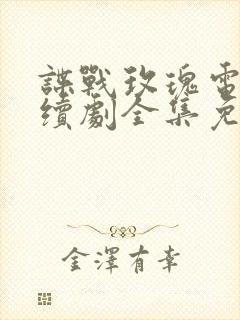 諜戰玫瑰電
續劇全集免
金澤有幸